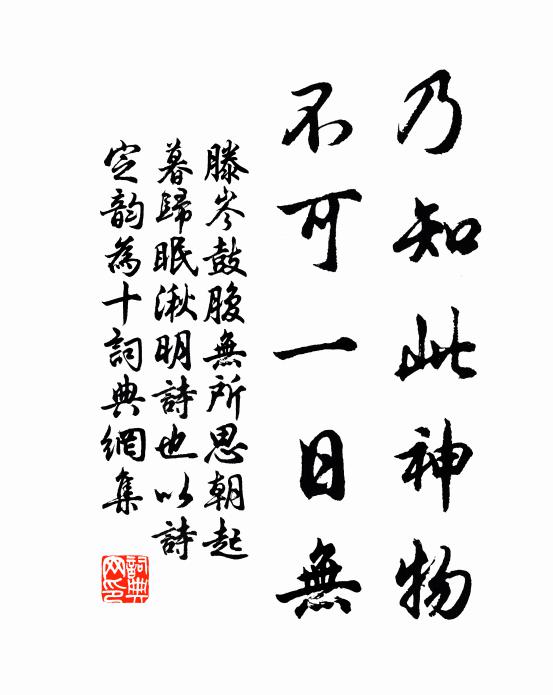 乃知此神物
不可一日無
滕岑鼓腹無所思朝起
暮歸眠湫明詩也以詩
定韵為十詞典網集
詞典网印